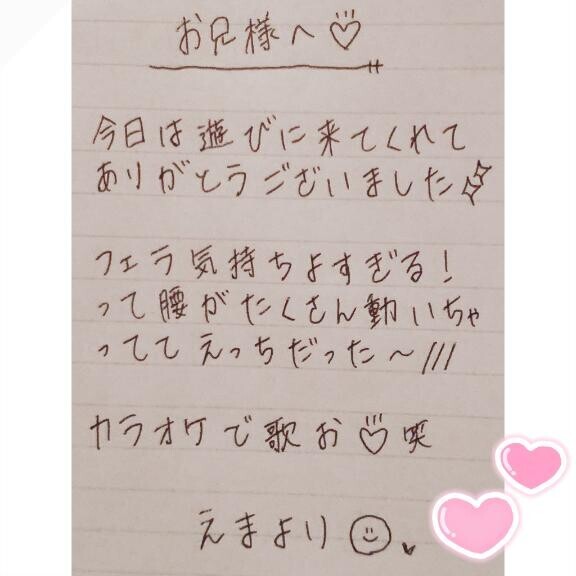 お兄様へ♡
今日は遊びに来てくれて
ありがとうございました
フェラ気持ちよすぎる!
って腰がたくさん動いちゃ
っててえっちだった〜///
カラオケで歌お♡笑
えまより